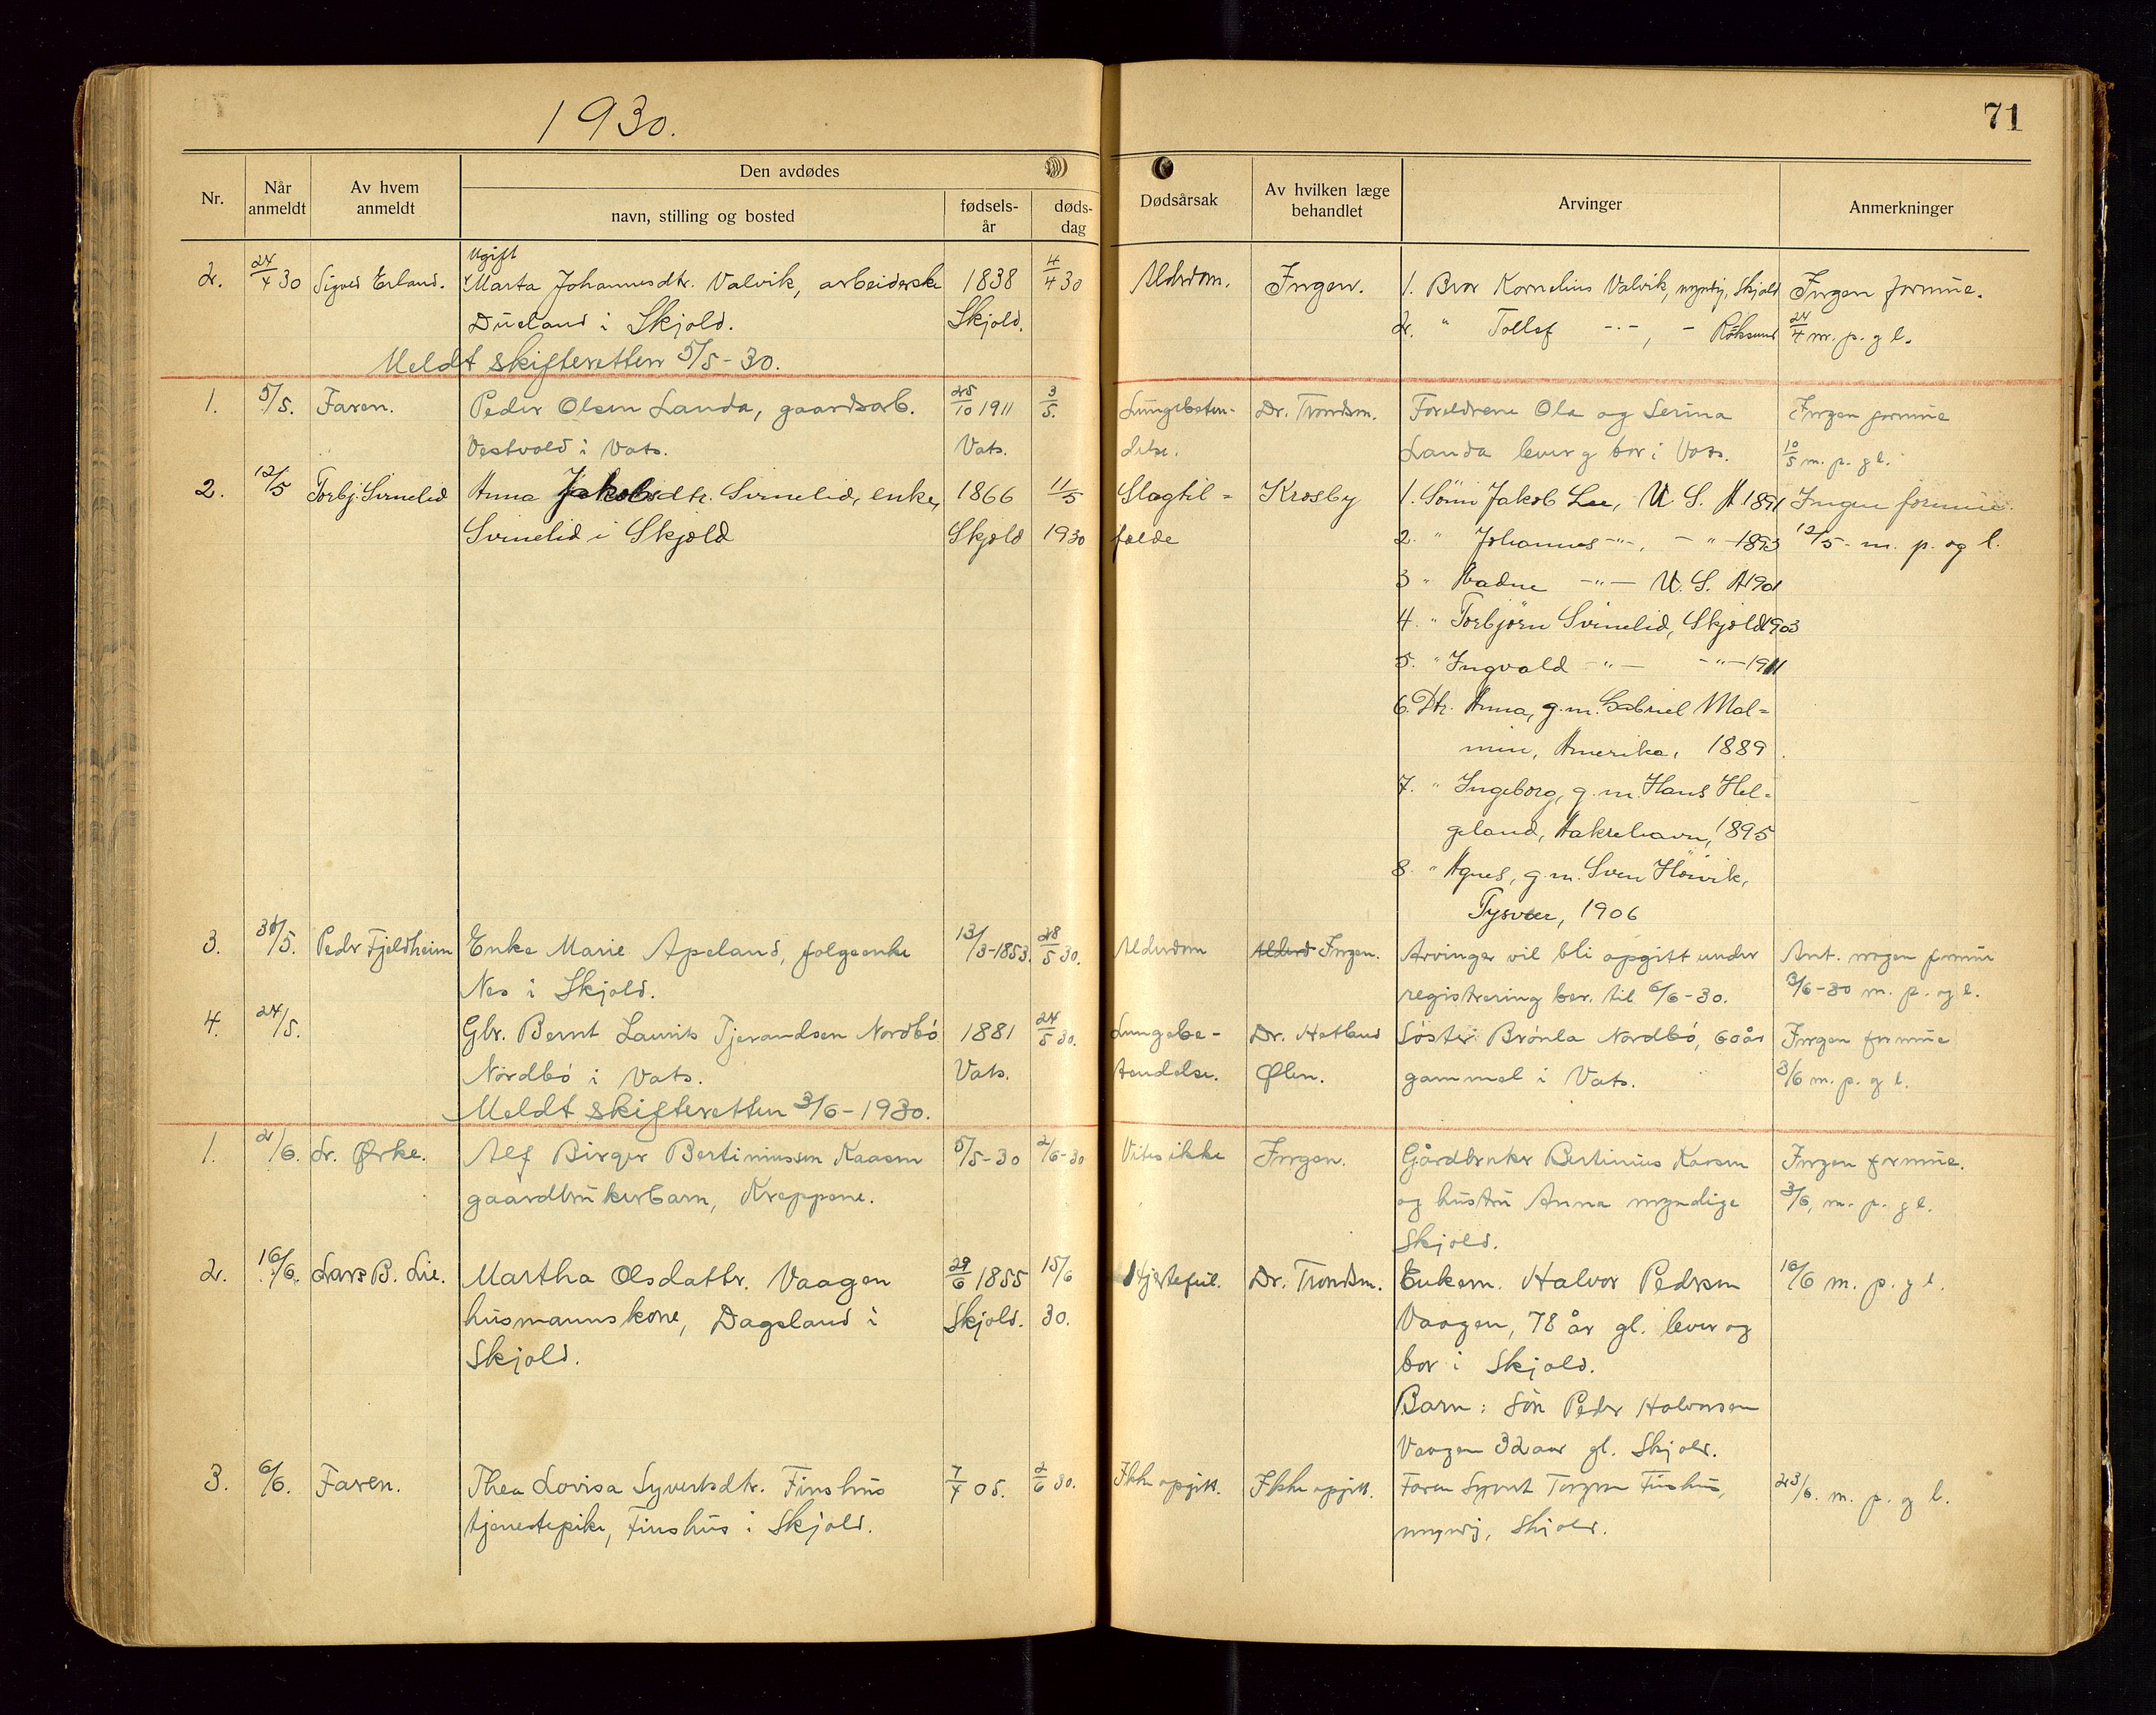 1930.
71
Nr.
Når anmeldt
Av hvem anmeldt
Den avdødes
navn, stilling og bosted
fødsels- år
døds- dag
Dødsårsak
Av hvilken læge behandlet
Arvinger
Anmerkninger
Ugift
2. 24/4 30 Sigved Erland. Marta Johannesdtr. Valvik, arbeiderske 1838 4/4 30 Alderdom. Ingen. 1. Bror Kornelius Valvik, myndig, Skjold Ingen formue.
Dueland i Skjold. Skjold. 2. " Tollef -"-, - Røksund 24/4 m. p. g l.
Meldt skifteretten 5/5-30.
1. 5/5. Faren. Peder Olsen Landa, gaardsarb. 25/10 1911 3/5. Lungebeten- Dr. Trondsen. Foreldrene Ola og Serina Ingen formue
Vestvold i Vats. Vats. delse. Landa lever g bor i Vats. 10/5 m. p. g l.
2. 12/5 Torbj. Svinelid Anna Jakobsdtr. Svinelid, enke, 1866 11/5 Slagtil= Krosby 1. Sønn Jakob Lee, U. S. A 1891 Ingen formue.
Svinelid i Skjold Skjold 1930 fælde 2. " Johannes -"-, -"- 1893 12/5- m. p. og l.
3 " -"- U. S. A 1901
4. " Torbjørn Svinelid, Skjold 1903
5. " Ingvald -"- -"- 1911
6. Dtr. Anna, g.m. Gabriel Mal=
min, Amerika, 1889
7. " Ingeborg, g.m. Hans Hel=
geland, Aakrehavn, 1895
8. " Agnes, g.m. Sven Høivik,
Tysvær, 1906
3. 31/5. Peder Fjeldheim Enke Marie Apeland, følgeenke 13/3-1853. 28/5 30. Alderdom Alderd Ingen. Arvinger vil bli opgitt under Ant. ingen formue
Nes i Skjold. registrering ber. til 6/6-30. 3/6-30 m. p. og l.
4. 24/5. Gbr. Bernt Laurits Tjerandsen Nordbó 1881 24/5 30. Lungebe- Dr. Hetland Søster: Brønla Nordbó, 60 år Ingen formue
Nordbó i Vats. Vats. tendelse. Ølen. gammel i Vats. 3/6 m. p. g l.
Meldt skifteretten 3/6-1930.
1. 2/6. L. Ørke. Alf Birger Bertiniussen Kaasen 5/5-30 2/6-30 Vites ikke Ingen. Gårdbruker Bertinius Kaasen Ingen formue.
gaardbrukerbarn, Kreppene. og hustru Anna myndige 3/6, m. p. g l.
Skjold.
2. 16/6. Lars B. Lie. Martha Olsdattr. Vaagen 29/6 1855 15/6 Hjertefeil. Dr. Trondsen. Enkem. Halvor Pedersen 16/6 m. p. g l.
husmannskone, Dagsland i Skjold. 30. Vaagen, 78 år gl. lever og
Skjold. bor i Skjold.
Barn: Søn Peder Halvorsen
Vaagen 32 aar gl. Skjold.
3. 6/6. Faren. Thea Lovisa Syvertsdtr. Finshus 7/7 05. 2/6 30. Ikke opgitt. Ikke opgitt. Faren Syvert Finshus, 23/6. m. p. g l.
tjenestepike, Finshus i Skjold. myndig, Skjold.